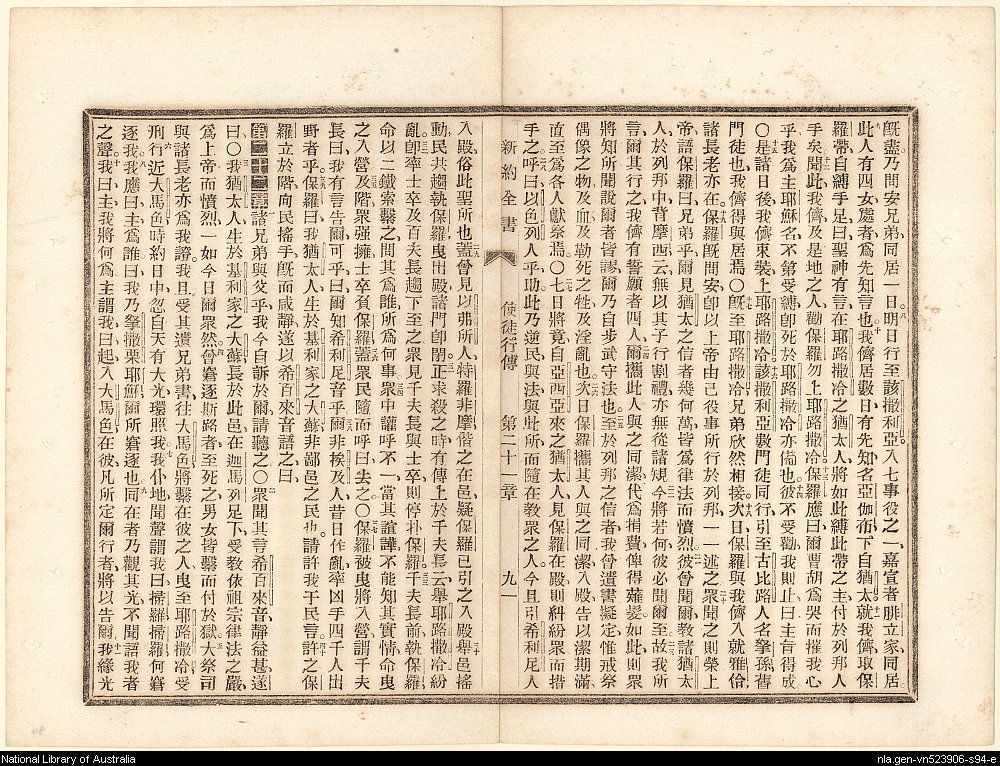 既盡乃問安兄弟同居一日明日行至該撒利亞入七事役之一嘉宣者腓立家同居
此人有四女處者為先知言也我儕居數日有先知名亞伽布下自猶太就我儕取保
羅帶自縛手足曰聖神有言在耶路撒冷之猶太人將如此縛此帶之主付於列邦人
手矣聞此我儕及是地之人勸保羅勿上耶路撒冷保羅應曰爾曹胡為哭而摧我心
乎我為主耶穌名不第受縛卽死於耶路撒冷亦備也彼不受勸我則止曰主旨得成
〇是諸日後我儕束裝上耶路撒冷該撒利亞數門徒同行引至古比路人名拏孫舊
門徒也我儕得與居焉〇既至耶路撒冷兄弟欣然相接次日保羅與我儕入就雅各
諸長老亦在保羅既問安卽以上帝由己役事所行於列邦一一述之眾聞之則榮上
帝語保羅曰兄弟乎爾見猶太之信者幾何萬皆為律法而憤烈彼曾聞爾教諸猶太
人於列邦中背摩西云無以其子行割禮亦無從諸規今將若何彼必聞爾至故我所
言爾其行之我儕有誓願者四人爾攜此人與之同潔代為捐費俾得薙髮如此則眾
將知所聞說爾者皆謬爾乃自步武守法也至於列邦之信者我曾遺書擬定惟戒祭
偶像之物及血及勒死之牲及淫亂也次日保羅攜其人與之同潔入殿告以潔期滿
直至為各人獻祭焉〇七日將竟自亞西亞來之猶太人見保羅在殿則糾紛眾而措
手之呼曰以色列人乎助此乃逆民與法與此所而隨在教眾之人今且引希利尼人
新約全書 使徒行傳 第二十一章 九一
入殿俗此聖所也蓋曾見以弗所人特羅非摩偕之在邑疑保羅已引之入殿舉邑搖
動民共趨執保羅曳出殿諸門卽閉正求殺之時有傳上於千夫長云舉耶路撒冷紛
亂卽率士卒及百夫長趨下至之眾見千夫長與士卒則停扑保羅千夫長前執保羅
命以二鐵索繫之問其為誰所為何事眾中讙呼不一當其諠譁不能知其實情命曳
之入營及階眾强擁士卒負保羅蓋眾民隨而呼曰去之〇保羅被曳將入營謂千夫
長曰我有言告爾可乎曰爾知希利尼音乎爾非埃及人昔日作亂率凶手四千人出
野者乎保羅曰我猶太人生於基利家之大蘇非鄙邑之民也請許我于民言許之保
羅立於階向民搖手既而咸靜遂以希百來音語之曰
第二十二章諸兄弟與父乎我今自訴於爾請聽之〇眾聞其言希百來音靜益甚遂
曰〇我猶太人生於基利家之大蘇長於此邑在迦馬列足下受教依祖宗律法之嚴
為上帝而憤烈一如今日爾眾然曾窘逐斯路者至死之男女皆繫而付於獄大祭司
與諸長老亦為我證我且受其遺兄弟書往大馬色將繫在彼之人曳至耶路撒冷受
刑行近大馬色時約日中忽自天有大光環照我我仆地聞聲謂我曰掃羅掃羅何窘
逐我我應曰主為誰曰我乃拏撒栗耶穌爾所窘逐也同在者乃觀其光不聞語我者
之聲我曰主我將何為主謂我曰起入大馬色在彼凡所定爾行者將以告爾我緣光
National Library of Australia
nla.gen-vn523906-s94-e